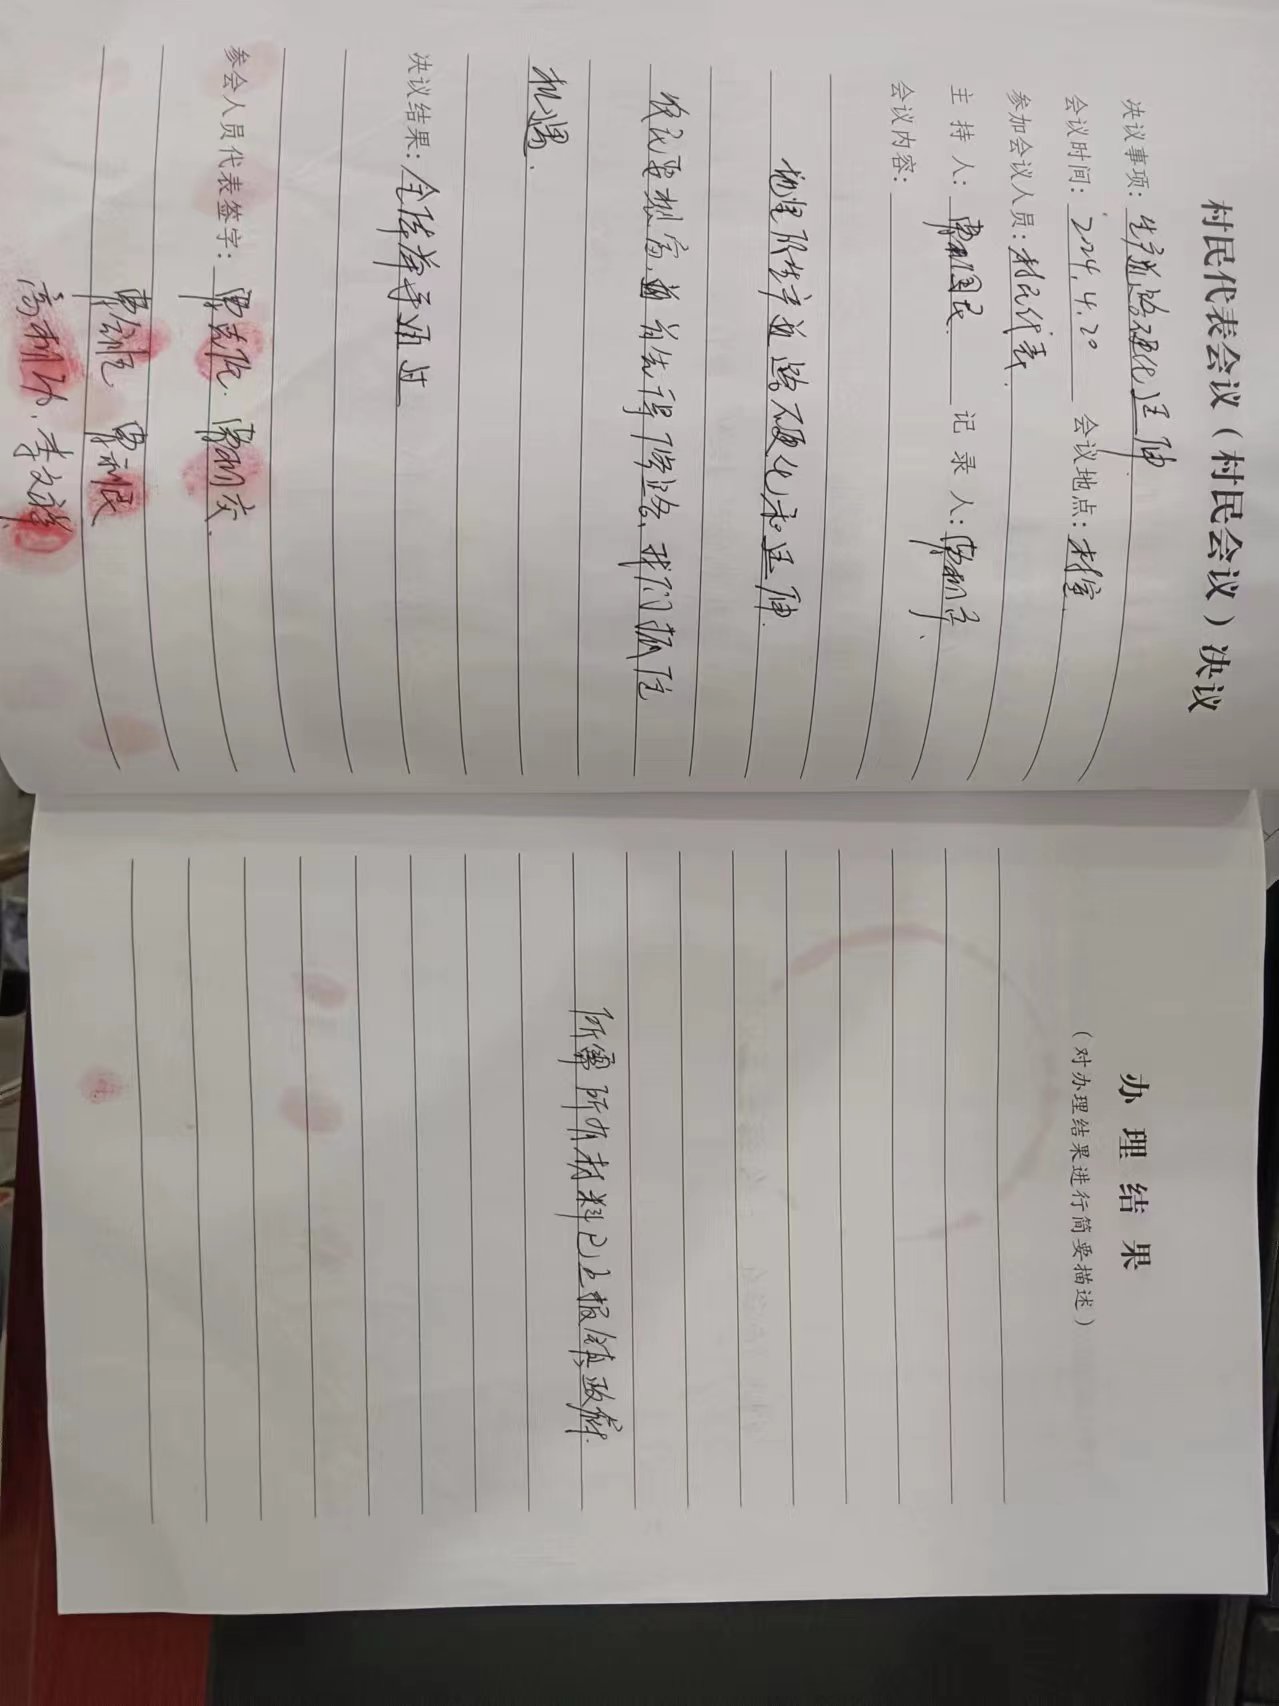 村民代表会议（村民会议）决议
决议事项：生产道路硬化延伸
会议时间：2024.4.20 会议地点：村室
参加会议人员：村民代表.
主持人：国民 记录人：
会议内容：
地里所生产道路硬化和延伸.
俗话要想富，首先得修路，我们抓住
机遇.
决议结果：全体举手通过
参会人员代表签字：
李文祥
办理结果
（对办理结果进行简要描述）
所需所有材料已上报镇政府.